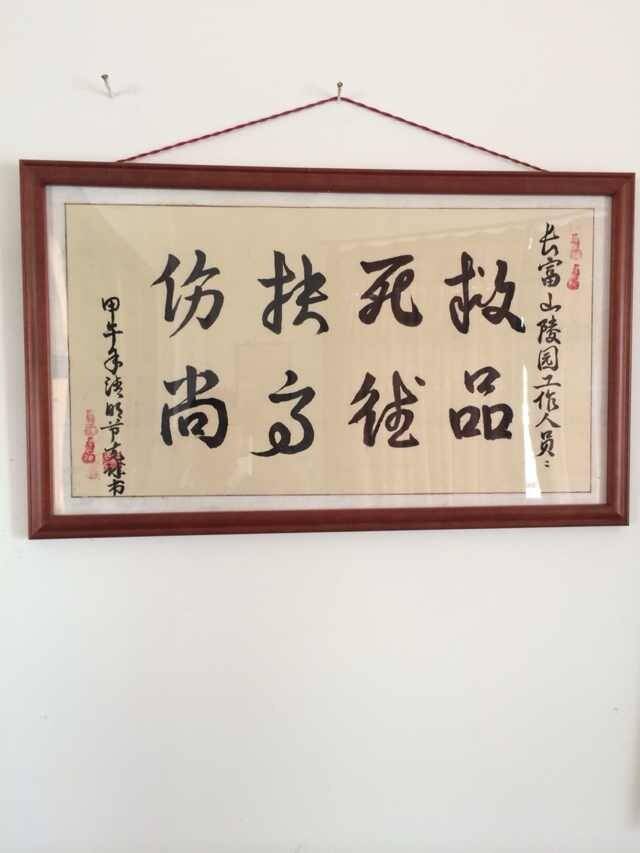 长富山陵园工作人员
救死扶伤
品德高尚
甲午年清明节
书